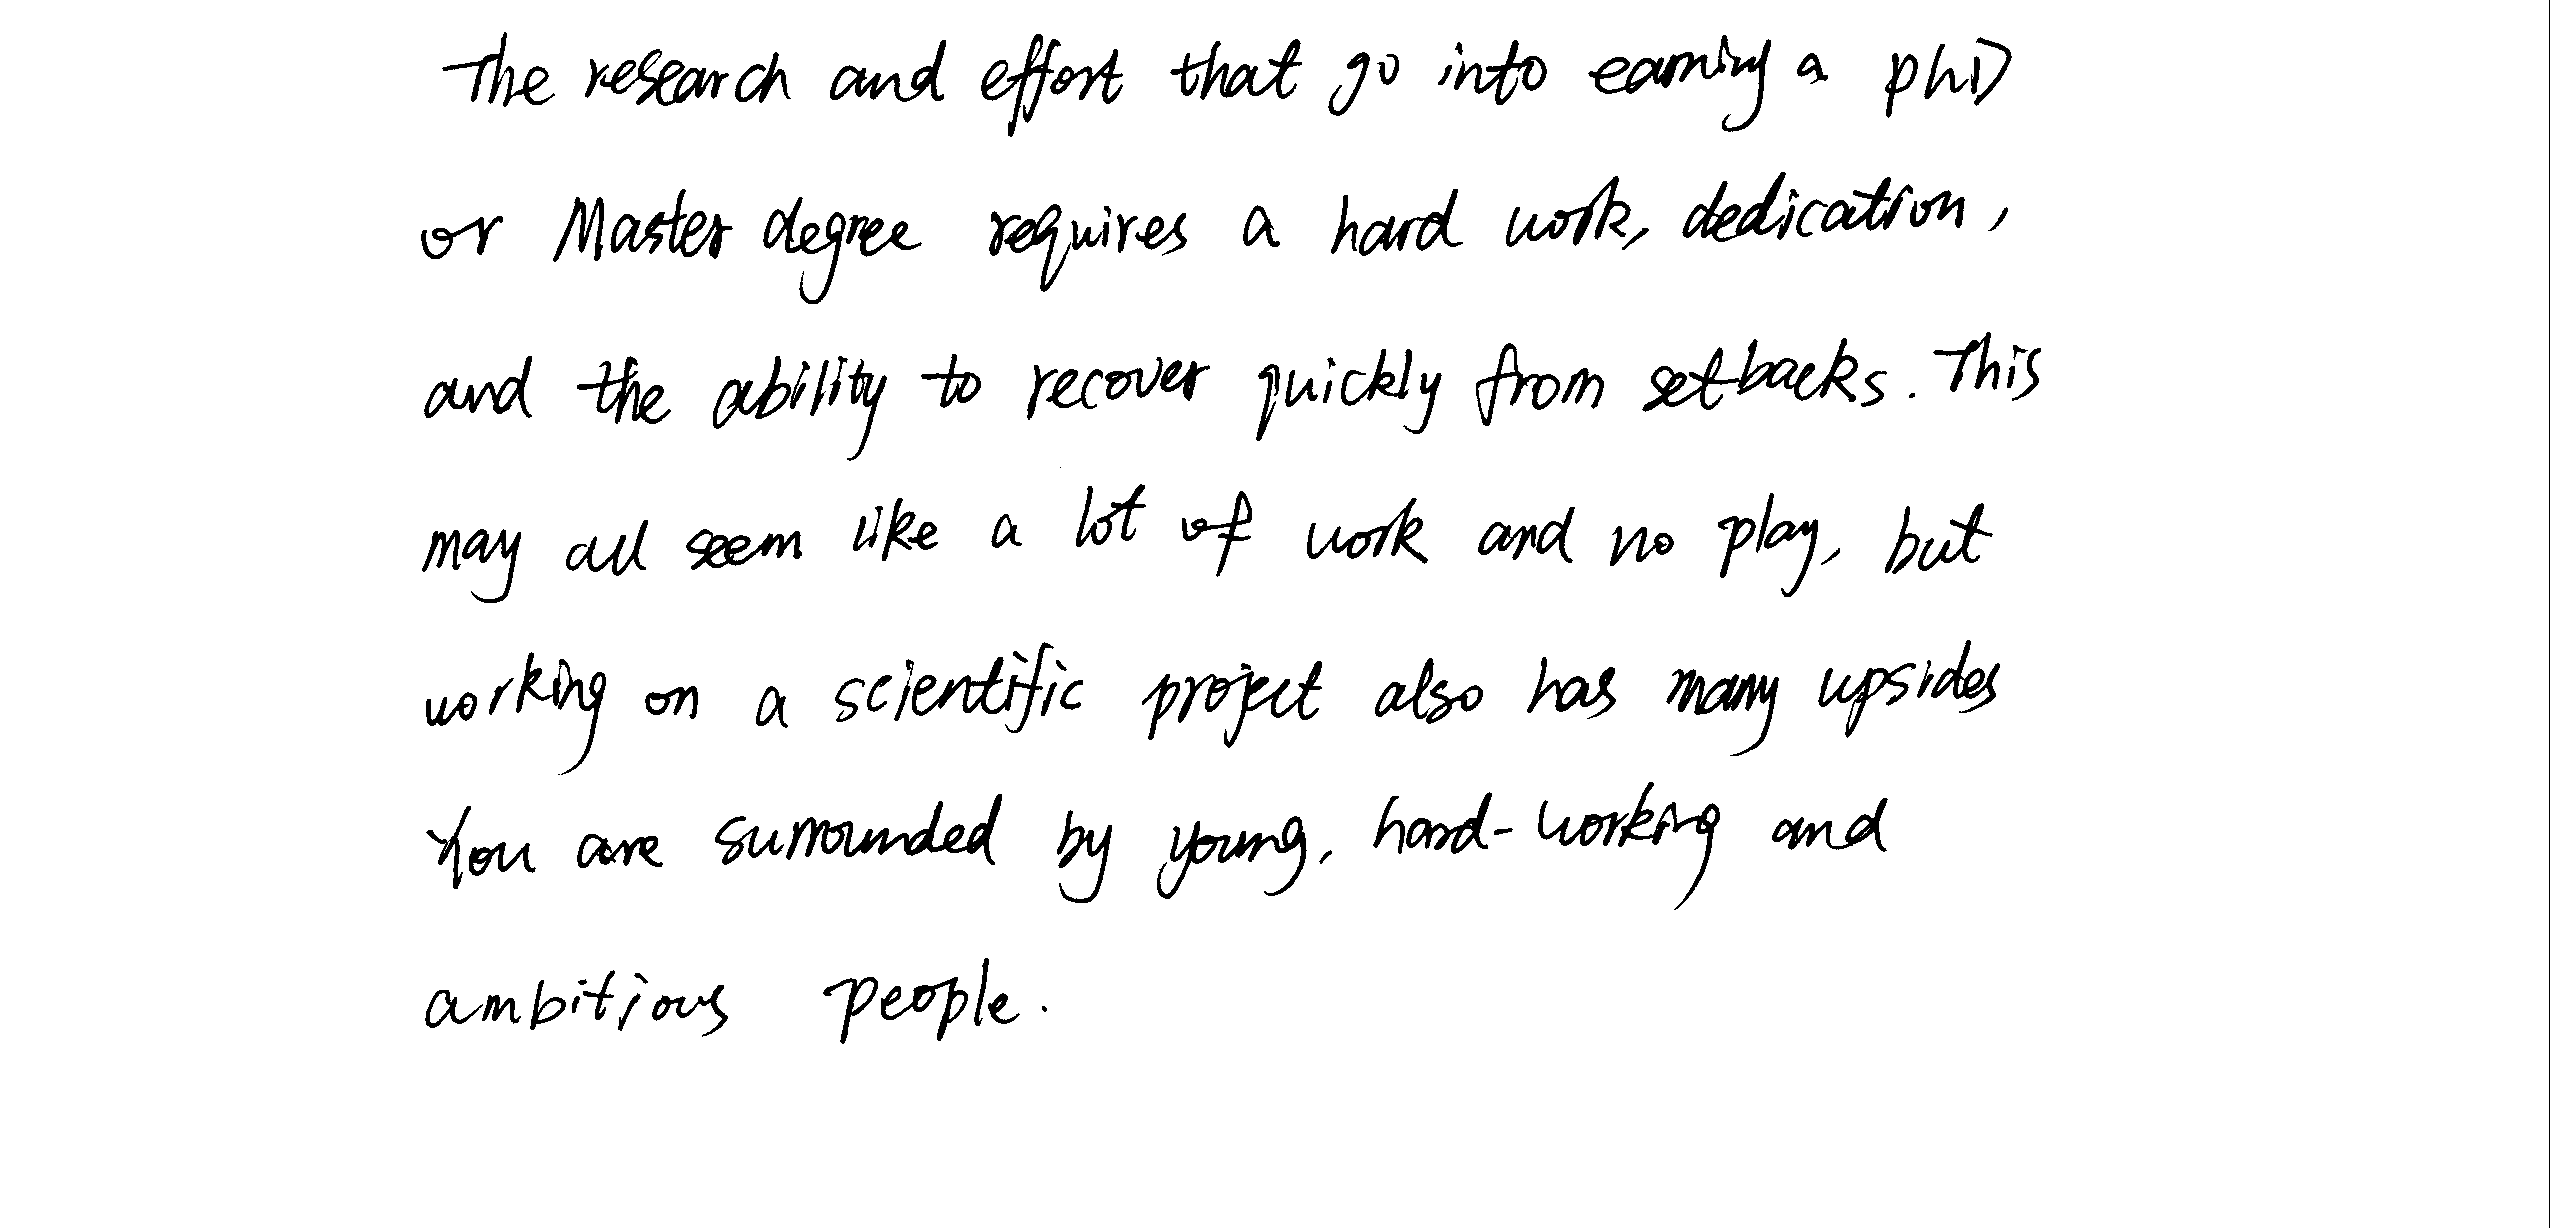 The research and effort that go into earning a phD
or Master degree requires a hard work, dedication,
and the ability to recover quickly from setbacks. This
may all seem like a lot of work and no play, but
working on a scientific project also has many upsides
You are surrounded by young, hard-working and
ambitious people.